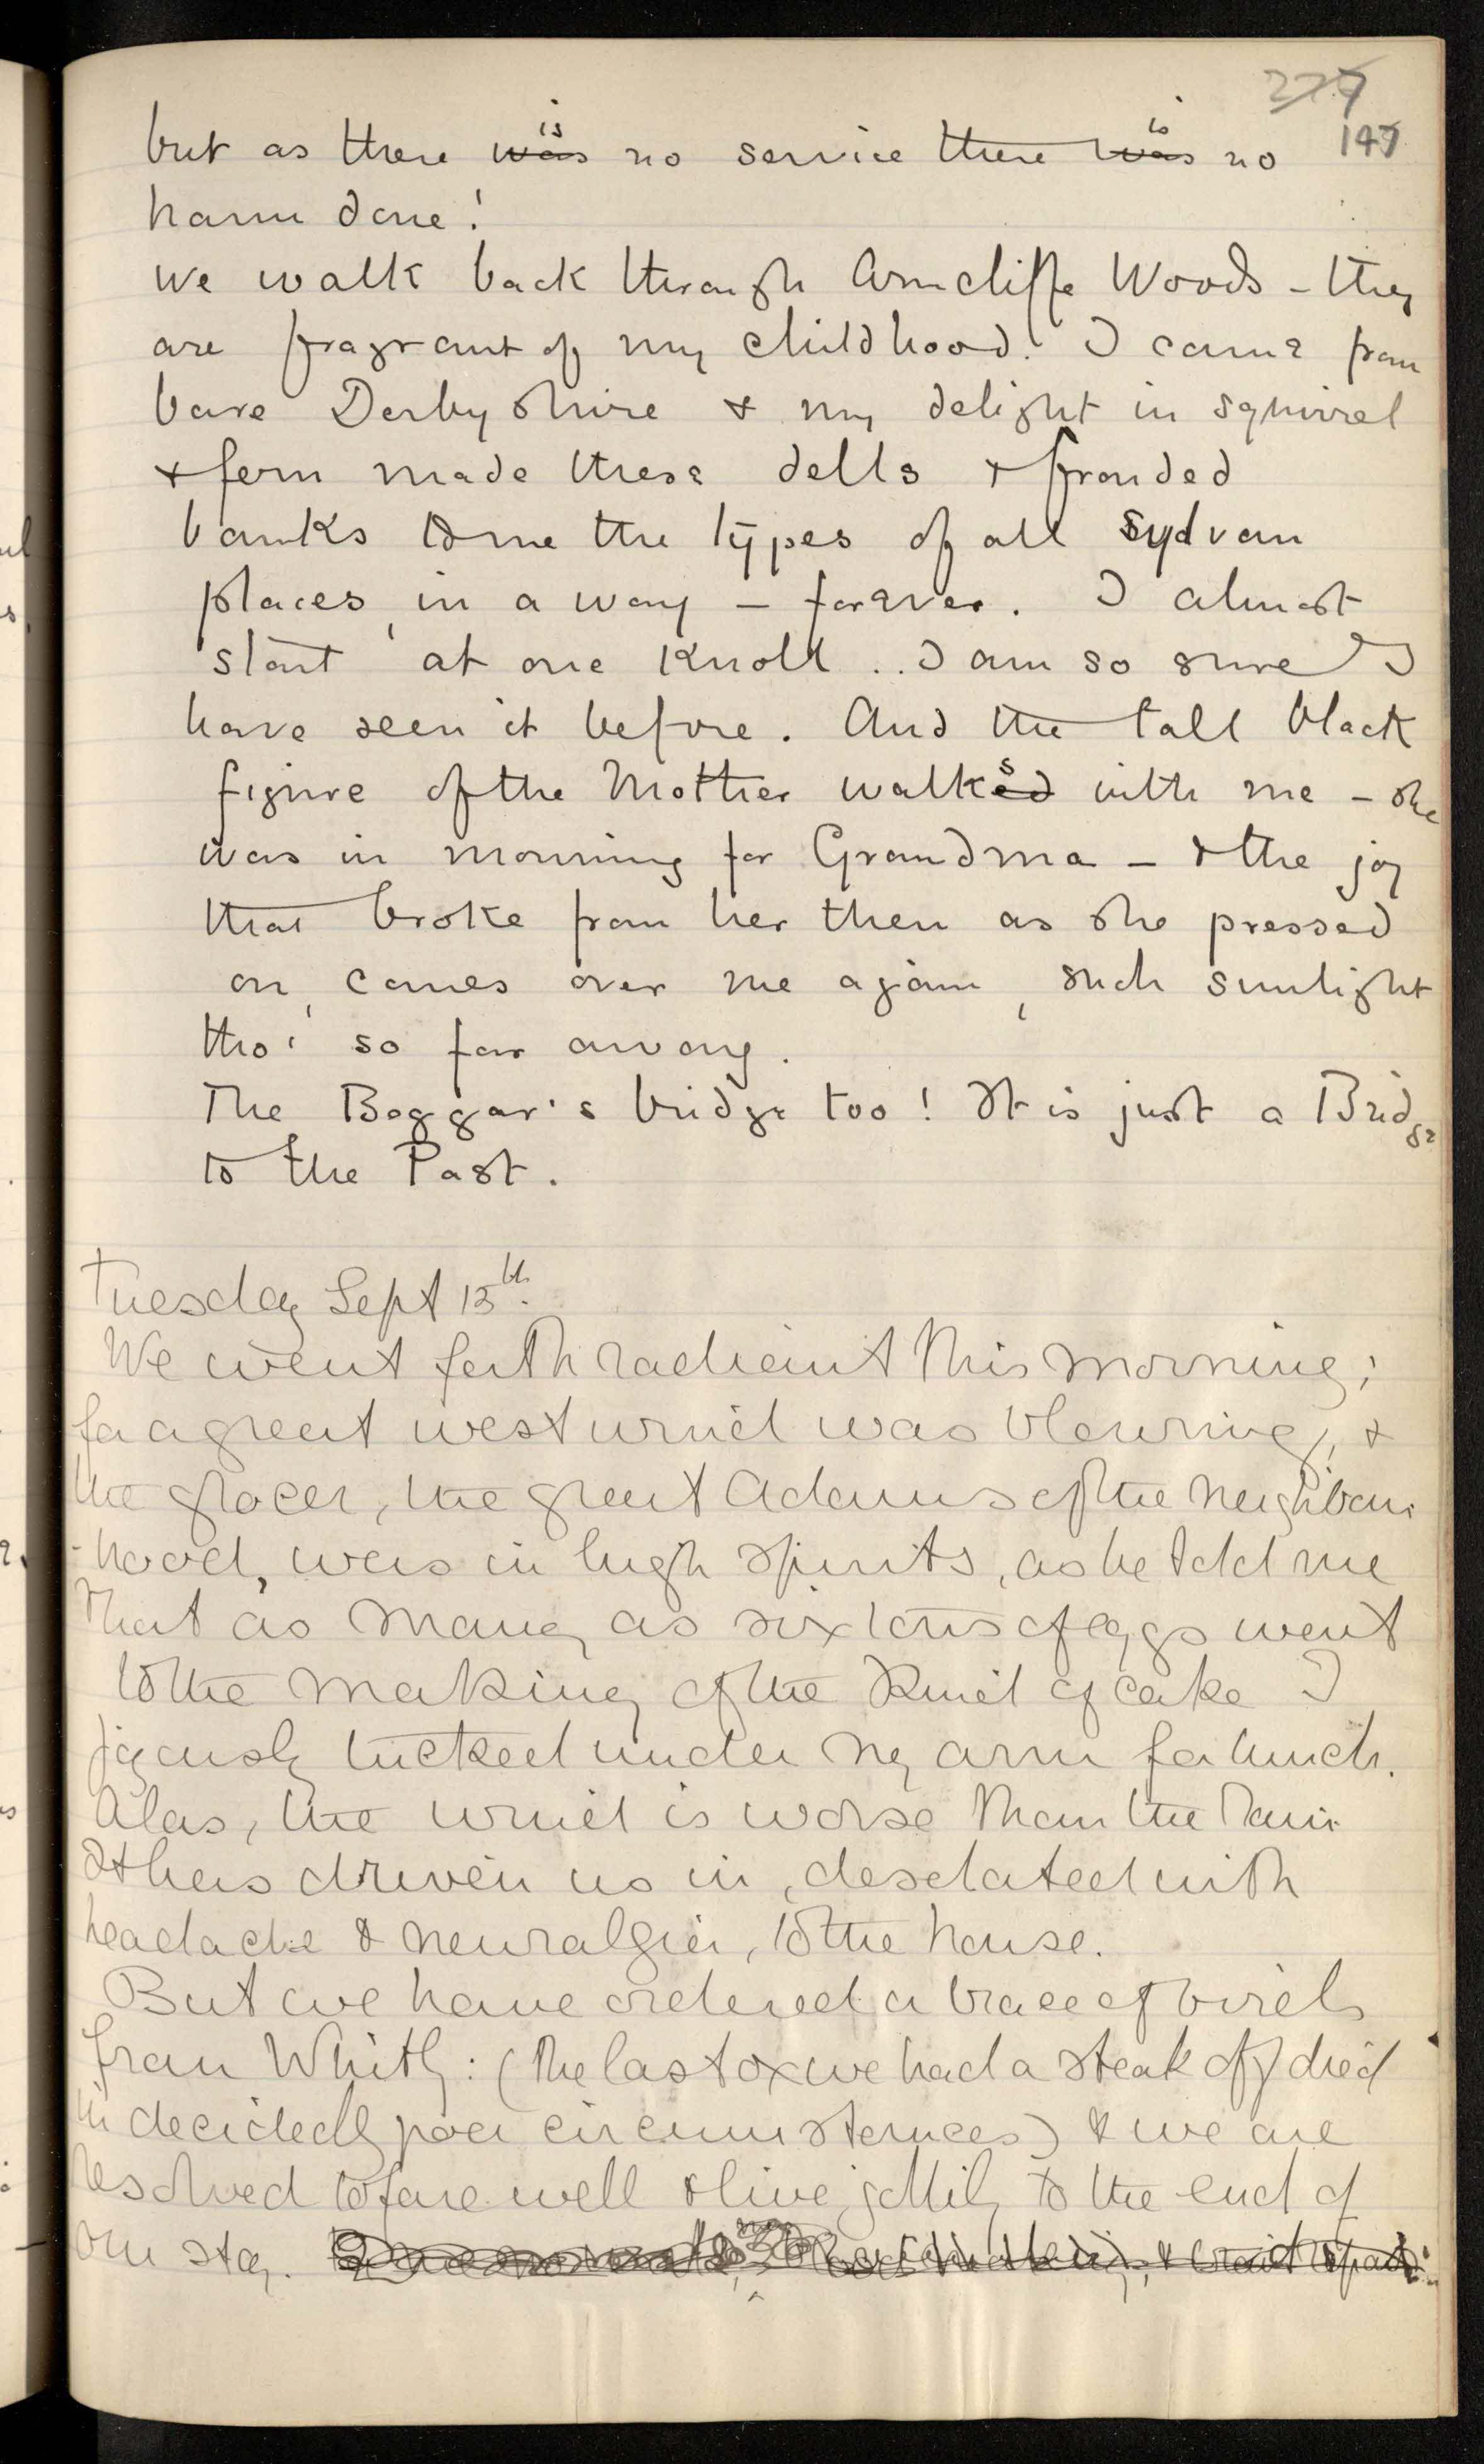 277
147
but as there was is no service there was is no
harm done!
We walk back through Arncliffe Woods – they
are fragrant of my childhood. I came from
bare Derbyshire & my delight in squirrel
& fern made these dells & fronded
banks to me the types of all sylvan
places, in a way – forever. I almost
start at one knoll .. I am so sure I
have seen it before. And the tall black
figure of the Mother walked s with me – she
was in mourning for Grandma – & the joy
that broke from her then as she pressed
on, comes over me again, such sunlight
tho' so far away.
The Beggar's bridge too! It is just a Bridge
to the Past.
Tuesday Sept 15th.
We went forth radiant this morning;
for a great west wind was blowing, &
the grocer, the great Adams of the neighbour
-hood, was in high spirits, as he told me
that as many as six tons of eggs went
to the making of the kind of cake I
joyously tucked under my arm for lunch.
Alas, the wind is worse than the rain
It has driven us in, desolated with
headache & neuralgia, to the house.
But we have ordered a brace of birds
from Whitby: (the last ox we had a steak off died
in decidedly poor circumstances) & we are
resolved to fare well & live jollily to the end of
our stay.